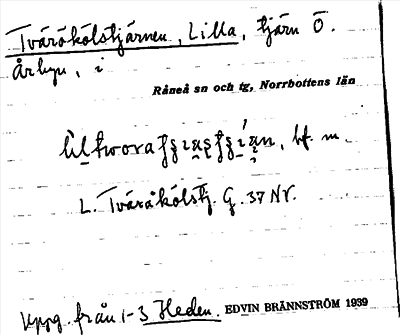 Tväråkölstjärnen, Lilla, tjärn Ö.
Årbyn, i
Råneå sn och tg, Norrbottens län
bf. m.
L. Tväråkölstj. G. 37 NV.
Uppg. från 1-3 Heden. EDVIN BRÄNNSTRÖM 1939